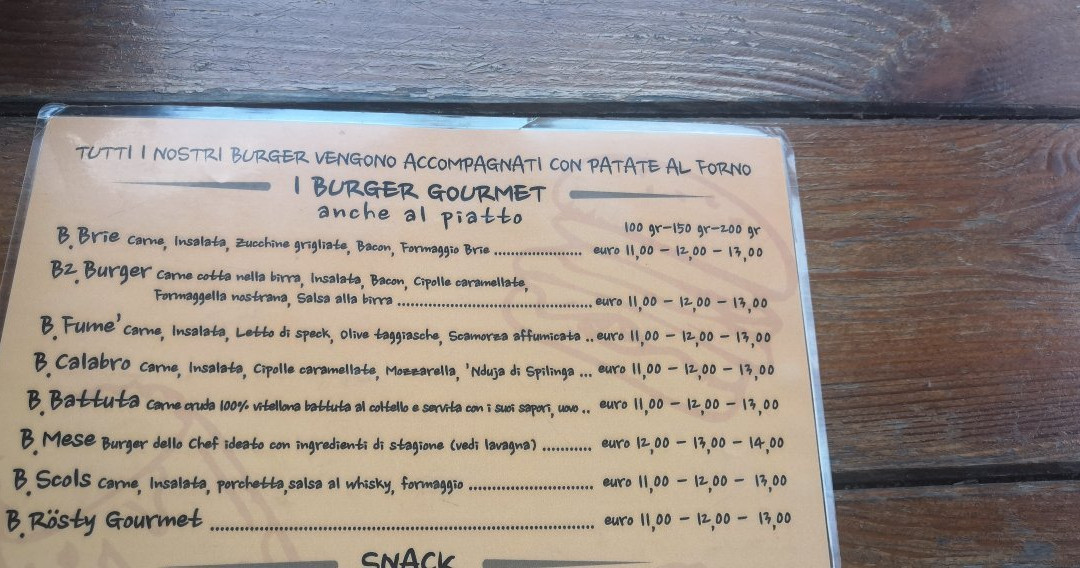 TUTTI I NOSTRI BURGER VENGONO ACCOMPAGNATI CON PATATE AL FORNO
I BURGER GOURMET
anche al piatto
100 gr-150 gr-200 gr
B.Brie Carne, Insalata, Zucchine grigliate, Bacon, Formaggio Brie ..................... euro 11,00 - 12,00 - 13,00
B2.Burger Carne cotta nella birra, Insalata, Bacon, Cipolle caramellate,
Formaggella nostrana, Salsa alla birra ................................................ euro 11,00 - 12,00 - 13,00
B.Fume' Carne, Insalata, Letto di speck, Olive taggiasche, Scamorza affumicata .. euro 11,00 - 12,00 - 13,00
B.Calabro Carne, Insalata, Cipolle caramellate, Mozzarella, 'Nduja di Spilinga ... euro 11,00 - 12,00 - 13,00
B.Battuta Carne cruda 100% vitellona battuta al coltello e servita con i suoi sapori, uovo .. euro 11,00 - 12,00 - 13,00
B.Mese Burger dello Chef ideato con ingredienti di stagione (vedi lavagna) ........... euro 12,00 - 13,00 - 14,00
B.Scols Carne, Insalata, porchetta,salsa al whisky, formaggio ............................. euro 11,00 - 12,00 - 13,00
B.Rösty Gourmet ................................................................................ euro 11,00 - 12,00 - 13,00
SNACK